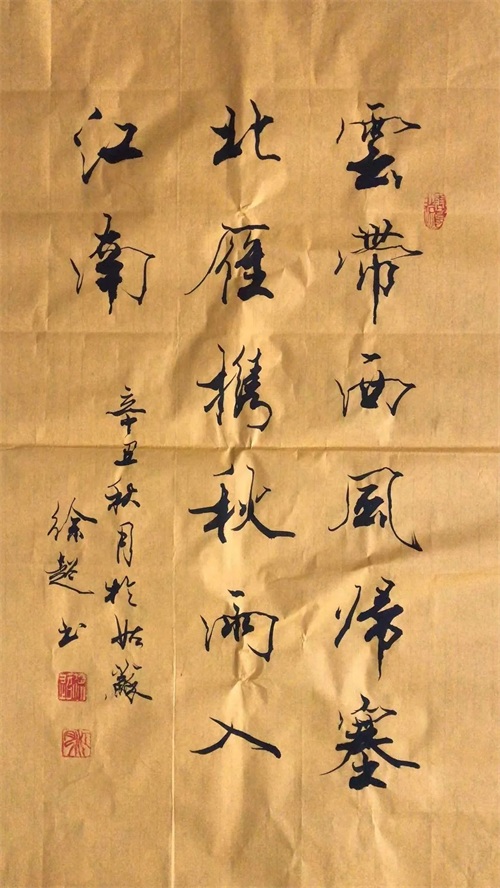 雲帶西風歸塞
北雁攜秋雨入
江南
辛丑秋月於姑蘇
徐超書